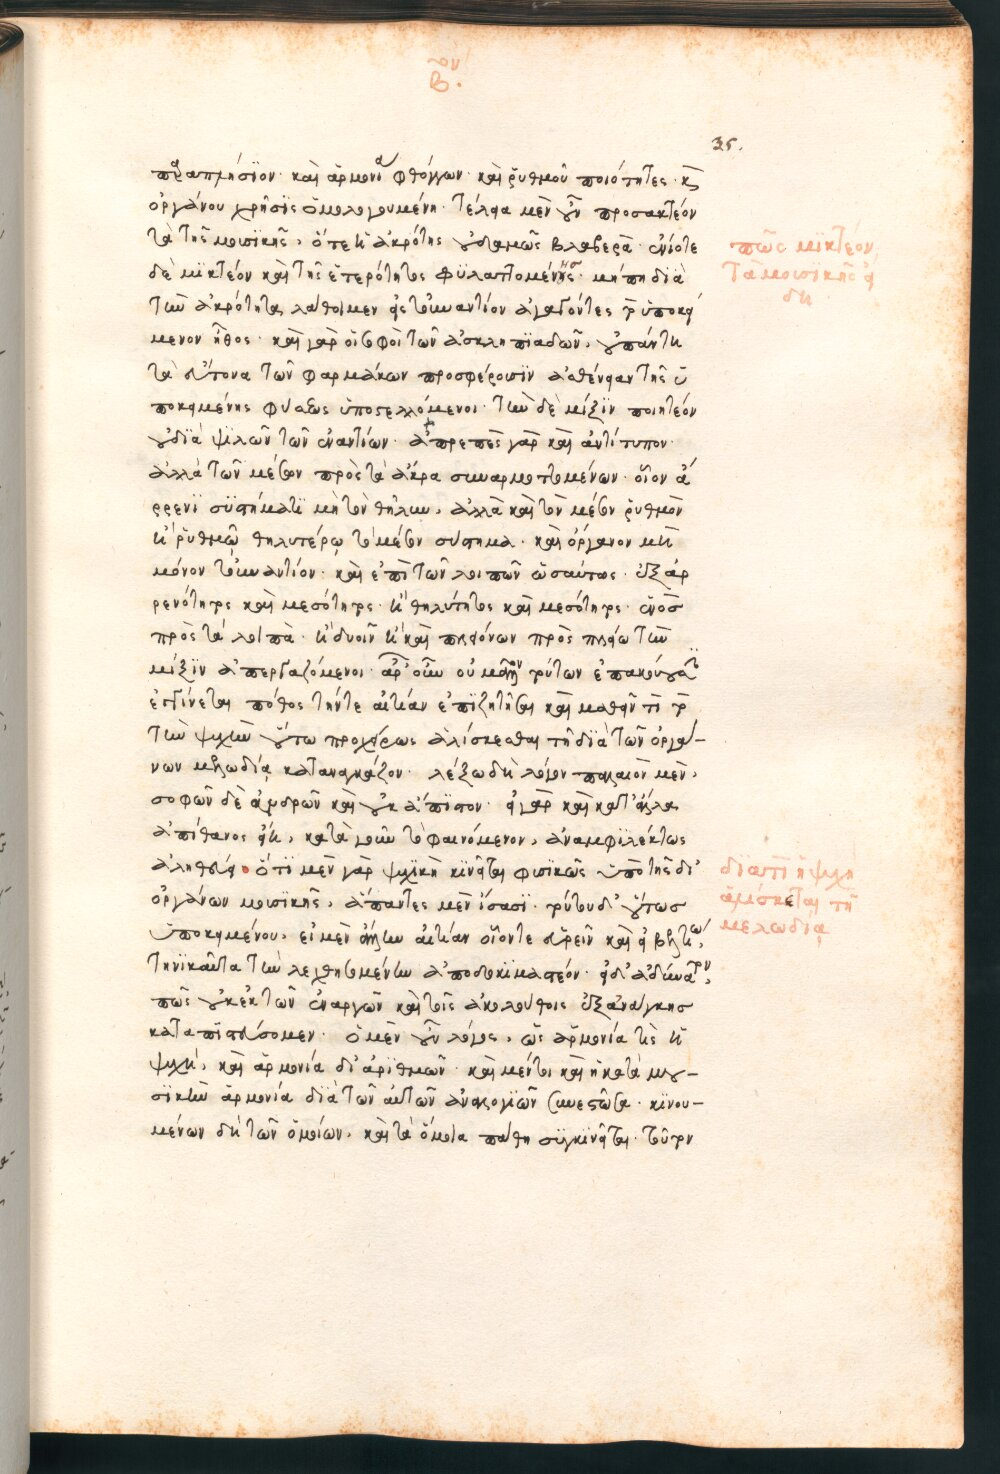 βον.
35.
παραπλήσϊον· καὶ ἁρμονία φθόγγων· καὶ ῥυθμοῦ ποιότητες· κ
ὀργάνου χρῆσϊς ὁμολογουμένη· τέλεα μὲν οὖν προσακτέον
τὰ τῆς μουσϊκῆς, ὅτε ἡ ἀκρότης οὐδαμῶς βλαβερά· ἐνίοτε
δὲ μϊκτέον καὶ τῆς ἑτερότητος φϋλαπτομένης· μήπη διὰ
τὴν ἀκρότητα λάθοιμεν εἰς τοὐναντίον ἀγαγόντες τὸ ὑποκεί
μενον ἦθος· καὶ γὰρ οἱ σοφοὶ τῶν ἀσκληπϊαδῶν, οὐ πάντη
τὰ εὔτονα τῶν φαρμάκων προσφέρουσϊν ἀσθένειαν τῆς ὑ
ποκειμένης φύσεως ὑποστελλόμενοι· τὴν δὲ μίξϊν ποιητέον
οὐ δϊὰ ψϊλῶν τῶν ἐναντίων· ἀπρεπὲς γὰρ καὶ ἀντίτυπον·
ἀλλὰ τῶν μέσων πρὸς τὰ ἄκρα συναρμοττομένων· οἷον ἄ
ρρενϊ συστήματϊ μὴ τὸν θῆλυν, ἀλλὰ καὶ τὸν μέσον ῥυθμὸν
ἢ ῥυθμῷ θηλυτέρῳ τὸ μέσον σύστημα· καὶ ὄργανον μὴ
μόνον τοὐναντίον· καὶ ἐπὶ τῶν λοιπῶν ὡσαύτως· ἐξ ἀρ
ρενότητος καὶ μεσότητος· ἢ θηλύτητος καὶ μεσότητος· ἑνὸς
πρὸς τὰ λοιπὰ· ἢ δυοῖν ἢ καὶ πλειόνων πρὸς πλείω τὴν
μίξϊν ἀπεργαζόμενοι· ἆρ' οὖν οὐ μόνον τούτων ἐπακούσασ
ἐγγίνεται πόθος τήνδε αἰτίαν ἐπϊζητῆσαι καὶ μαθεῖν τί τὸ
τὴν ψυχὴν οὕτω προχείρως ἁλίσκεσθαι τῇ δϊὰ τῶν ὀργά-
νων μελωδίᾳ καταναγκάζον· λέξω δὴ λόγον παλαιὸν μὲν,
σοφῶν δὲ ἀνδρῶν καὶ οὐκ ἄπϊστον· εἰ γὰρ καὶ κατ' ἄλλα
ἀπίθανος εἴη, κατὰ γοῦν τὸ φαινόμενον, ἀναμφϊλέκτως
ἀληθεύει· ὅτϊ μὲν γὰρ ψυχὴ κϊνεῖται φυσϊκῶς ὑπὸ τῆς δι'
ὀργάνων μουσϊκῆς, ἅπαντες μὲν ἴσασϊ· τούτου δ' οὕτως
ὑποκειμένου, εἰ μὲν ἄλλην αἰτίαν οἷόν τε εὑρεῖν καὶ εἰ βελτίω,
τηνϊκαῦτα τὴν λεχθησομένην ἀποδοκϊμαστέον· εἰ δ' ἀδύνατον,
πῶς οὐκ ἐκ τῶν ἐναργῶν καὶ τοῖς ἀκολούθοις ἐξ ἀνάγκης
καταπϊστεύσομεν· ὁ μὲν οὖν λόγος, ὡς ἁρμονία τὶς ἡ
ψυχὴ, καὶ ἁρμονία δι' ἀρϊθμῶν· καὶ μέντοι καὶ ἡ κατὰ μου-
σϊκὴν ἁρμονία δϊὰ τῶν αὐτῶν ἀναλογϊῶν συνεστῶσα· κϊνου-
μένων δὴ τῶν ὁμοίων, καὶ τὰ ὅμοια πάθη συγκϊνεῖται· τοῦτον
πῶς μϊκτέον
τὰ μουσϊκῆς εἴ
δη
δϊατὶ ἡ ψυχὴ
ἁλίσκεται τῇ
μελωδίᾳ